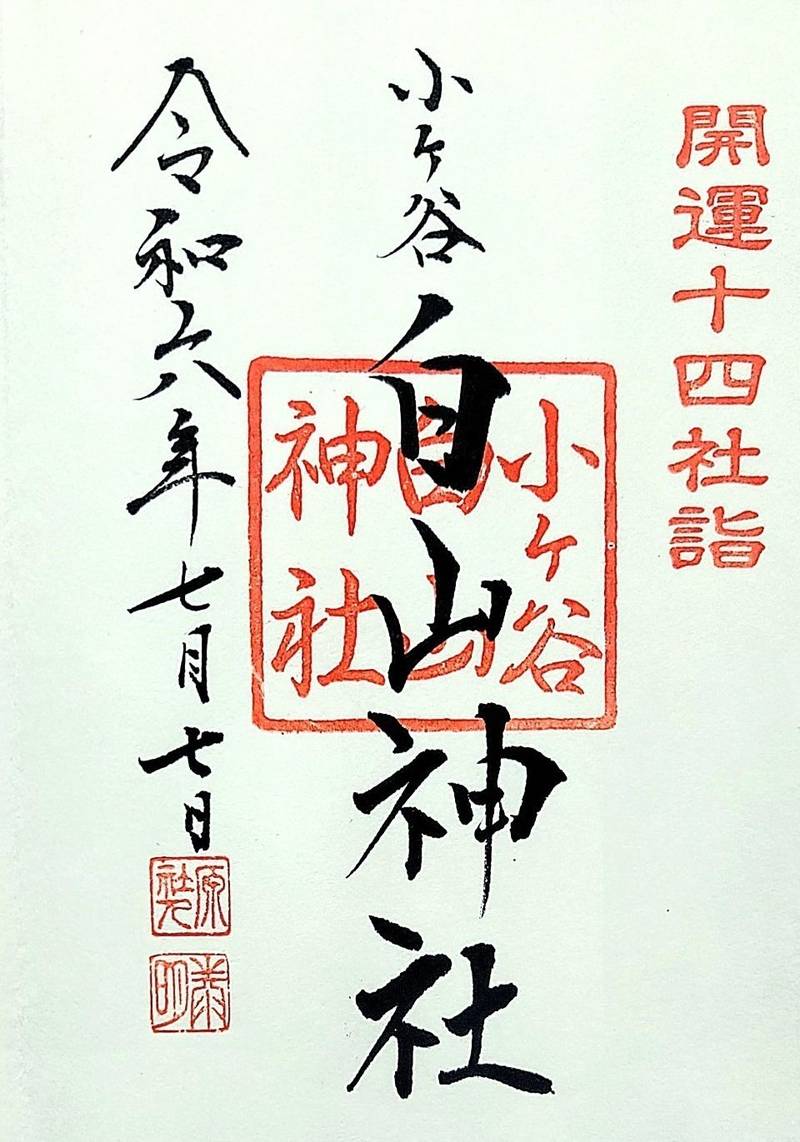 開運十四社詣
小ヶ谷白山神社
小ヶ谷
白山
神社
令和六年七月七日